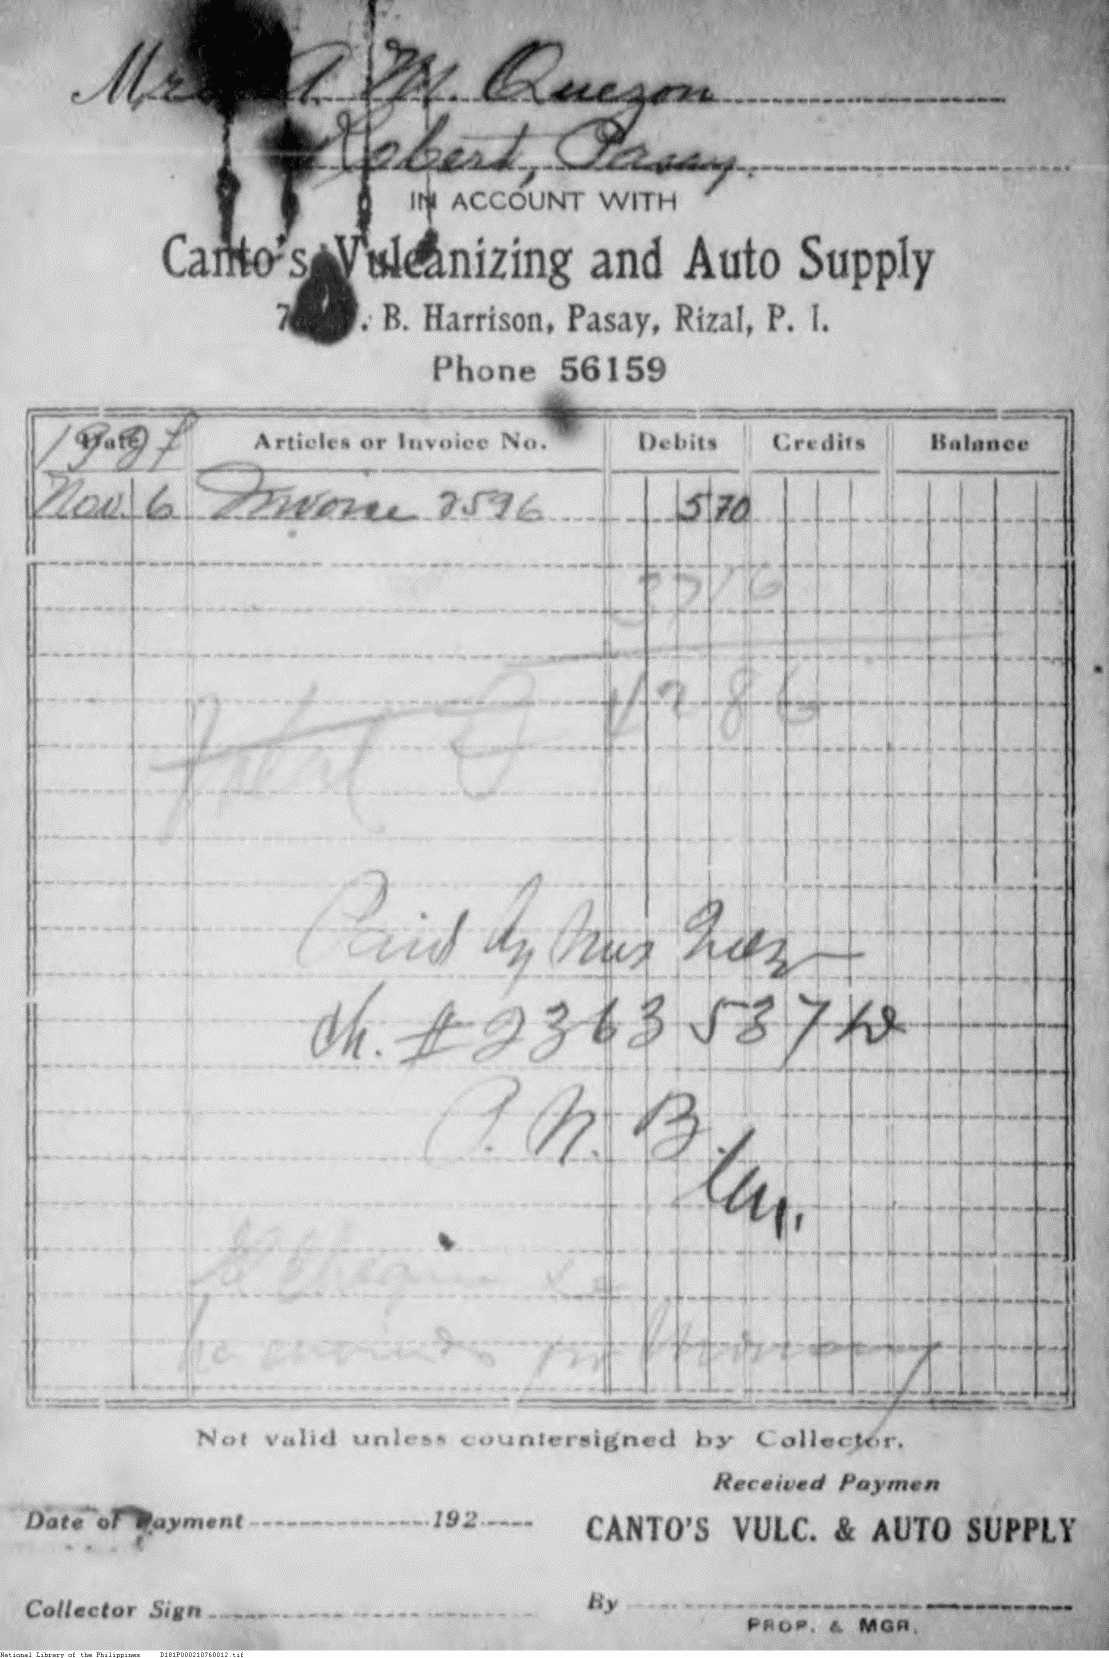 Mrs. A. M. Quezon
Robert, Pasay.
IN ACCOUNT WITH
Canto's Vulcanizing and Auto Supply
B. Harrison, Pasay, Rizal, P. I.
Phone 56159
Date Articles or Invoice No. Debits Credits Balance
Nov. 6 Invoice 2596 5 70
37 16
Total 42 86
Paid by Mrs Quezon
Ch. # 2363537
P. N. B.
Not valid unless countersigned by Collector.
Received Paymen
Date of Payment 192
CANTO'S VULC. & AUTO SUPPLY
Collector Sign
By
PROP. & MGR.
National Library of the Philippines D181P000210760012.tif